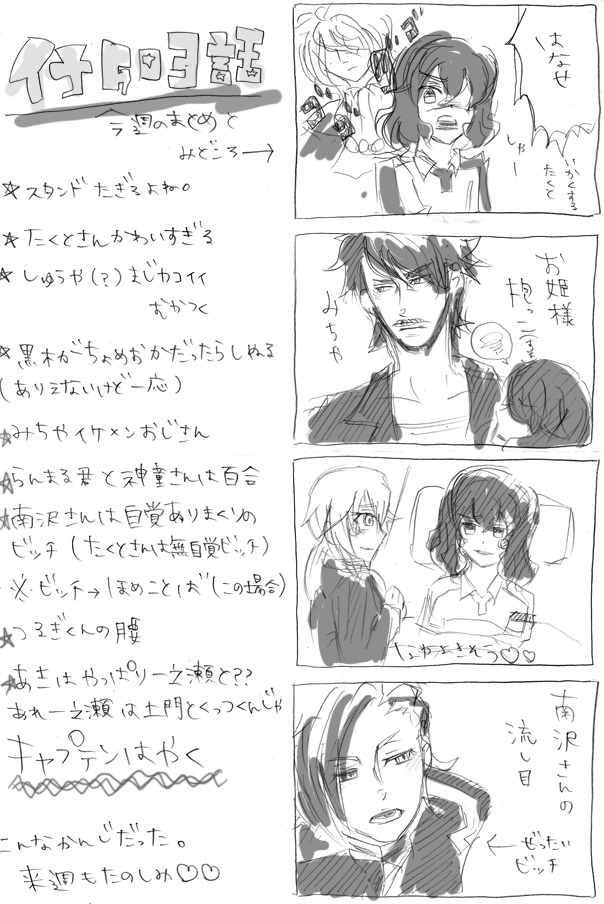 イナGO3話
今週のまとめと
みどころ→
☆スタンドたぎるよね。
☆たくとさんかわいすぎる
☆しゅうや(?)まじカコイイ
むかつく
☆黒木がちょめおかだったらしねる
(ありえないけど一応)
☆みちやイケメンおじさん
☆らんまる君と神童さんは百合
☆南沢さんは自覚ありまくりの
ビッチ(たくとさんは無自覚ビッチ)
※ビッチ→ほめことば(この場合)
☆つるぎくんの腰
☆あきはやっぱり一之瀬と??
あれ一之瀬は土門とくっつくんじゃ
キャプテンはやく
こんなかんじだった。
来週もたのしみ♡♡
はなせ
しゃー
いかくする
たくと
お姫様
抱っこ
みちや
なかよさそう♡♡
南沢さんの
流し目
←ぜったい
ビッチ